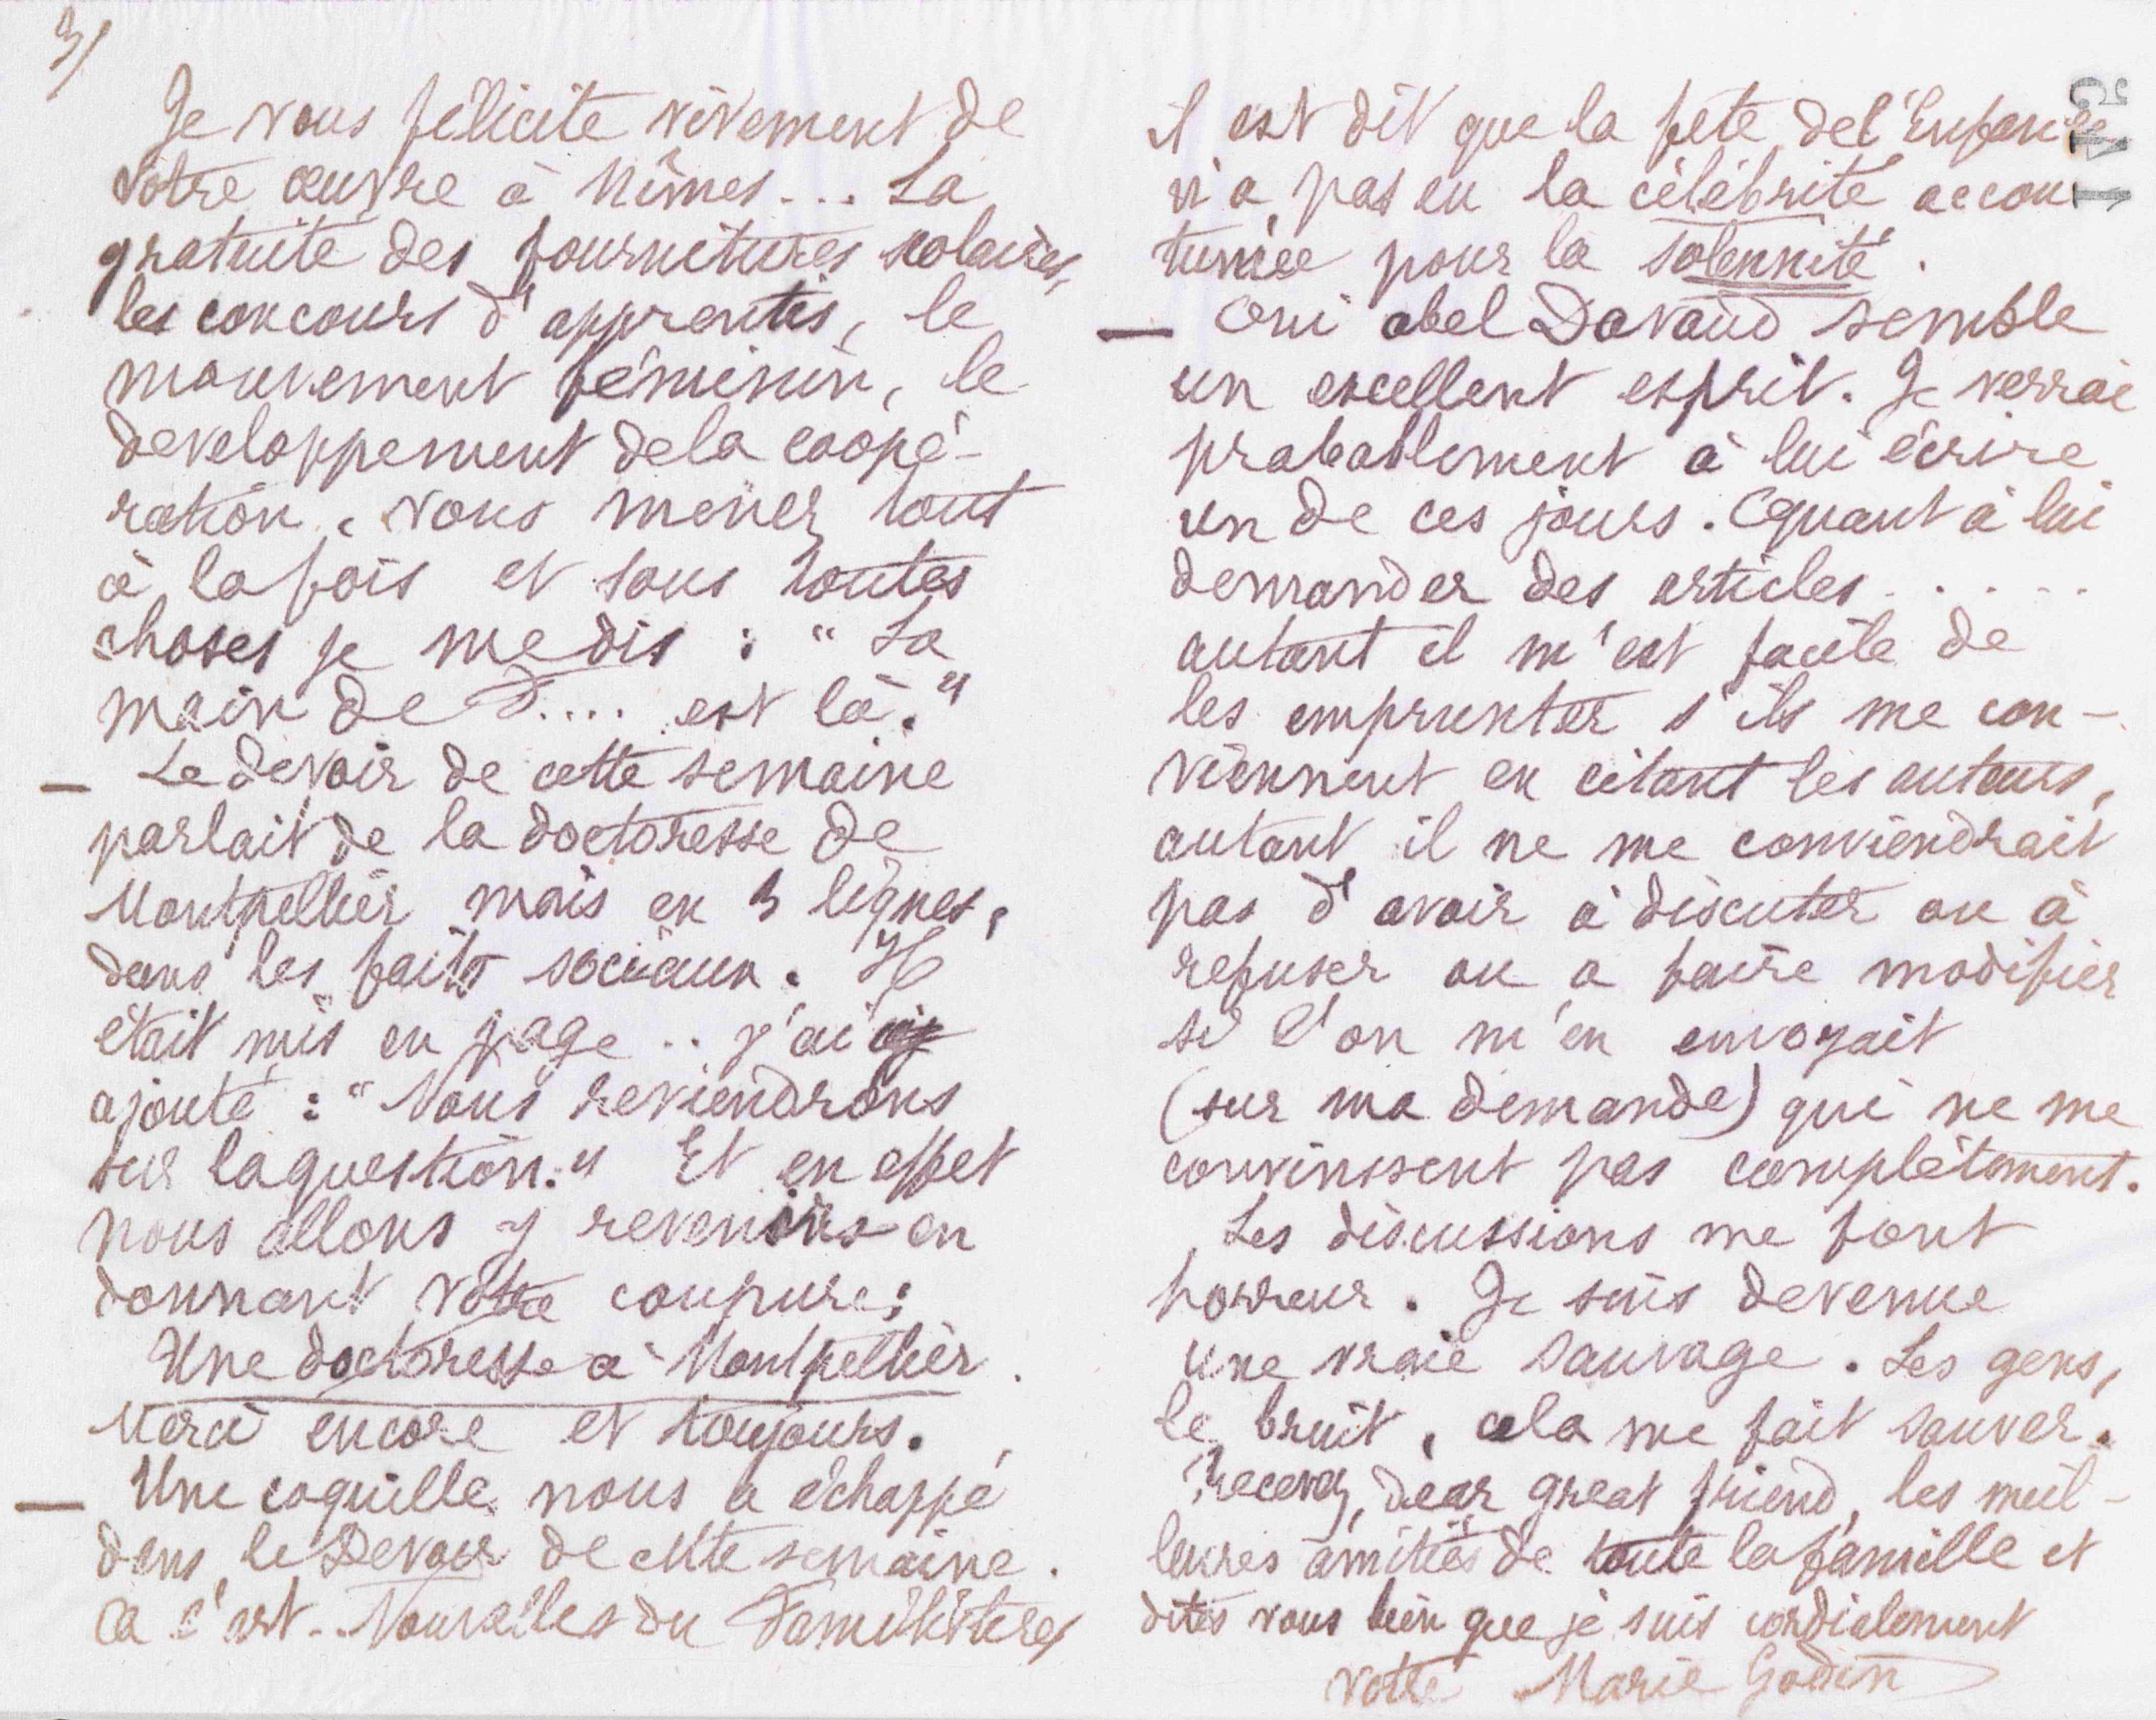 3/
Je vous félicite vivement de
votre œuvre à Nîmes... La
gratuité des fournitures scolaires,
les concours d'apprentis, le
mouvement féminin, le
developpement de la coopé-
ration, vous menez tout
à la fois et sous toutes
choses je me dis : "La
main de F.... est là."
— Le devoir de cette semaine
parlait de la doctoresse de
Montpellier mais en 3 lignes,
dans les faits sociaux. Il
était mis en page .. j'ai
ajouté : "Nous reviendrons
sur la question." Et en effet
nous allons y revenir en
donnant votre coupure :
Une doctoresse à Montpellier.
Merci encore et toujours.
— Une coquille nous a échappé
dans le Devoir de cette semaine.
Ca c'est.. Nouvelles du Familistère,
il est dit que la fête de l'Enfance
n'a pas eu la célébrité accou
tumée pour la solennité.
— Oui abel Davaud semble
un excellent esprit. Je verrai
probablement à lui écrire
un de ces jours. Quant à lui
demander des articles.....
autant il m'est facile de
les emprunter s'ils me con-
viennent en citant les auteurs,
autant il ne me conviendrait
pas d'avoir à discuter ou à
refuser ou a faire modifier
si l'on m'en envoyait
(sur ma demande) qui ne me
convinssent pas complètement.
Les discussions me font
horreur. Je suis devenue
une vraie sauvage. Les gens,
le bruit, cela me fait sauver.
Recevez, dear great friend, les meil-
leures amitiés de toute la famille et
dites vous bien que je suis cordialement
votre Marie Godin
541